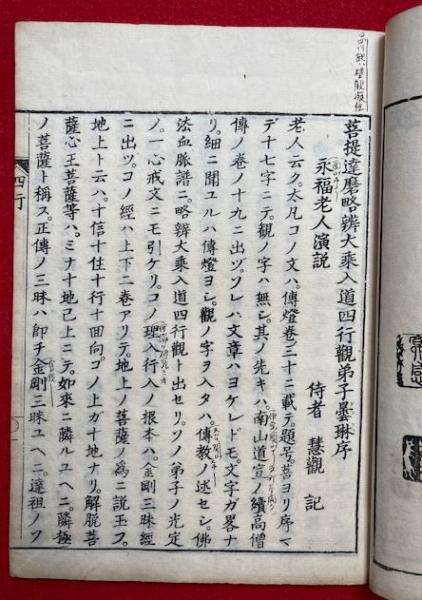 菩提達磨略辨大乘入道四行觀弟子曇琳序
永福老人演説
侍者 慧觀 記
老人云ク。太凡コノ文ハ。傳燈卷三十二載テ。題号。菩ヨリ序マ
デ十七字ニテ。觀ノ字ハ無シ。其ノ先キハ。南山道宣ノ續高僧
傳ノ卷ノ十九ニ出ヅ。ソレハ文章ハヨケレドモ。文字ガ畧ナ
リ。細ニ聞ユルハ傳燈ヨシ。觀ノ字ヲ入タハ。傳教ノ述セシ。佛
法血脈譜ニ。略辨大乘入道四行觀ト出セリ。ソノ弟子ノ光定
ノ。一心戒文ニモ引ケリ。コノ理入行入ノ根本ハ。金剛三昧經
ニ出ヅ。コノ經ハ上下二卷アリテ。地上ノ菩薩ノ爲ニ説玉フ。
地上ト云ハ。十信十住十行十回向。コノ上ガ十地ナリ。解脱菩
薩心王菩薩等ハ。ミナ十地已上ニテ。如來ニ隣ルユヘニ。隣極
ノ菩薩ト稱ス。正傳ノ三昧ハ即チ金剛三昧ユヘニ。達祖ノワ
四行